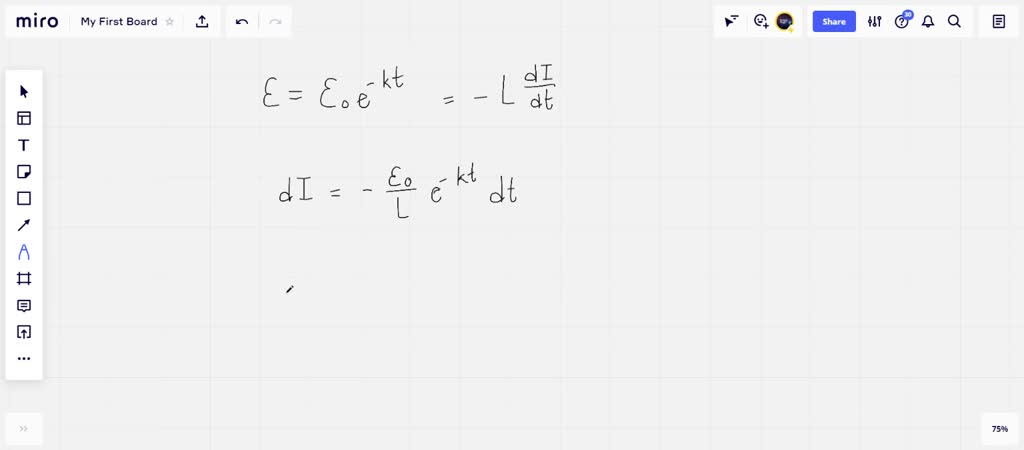 miro My First Board Share
ε = ε₀e^{-kt} = - L dI/dt
dI = - ε₀/L e^{-kt} dt
75%